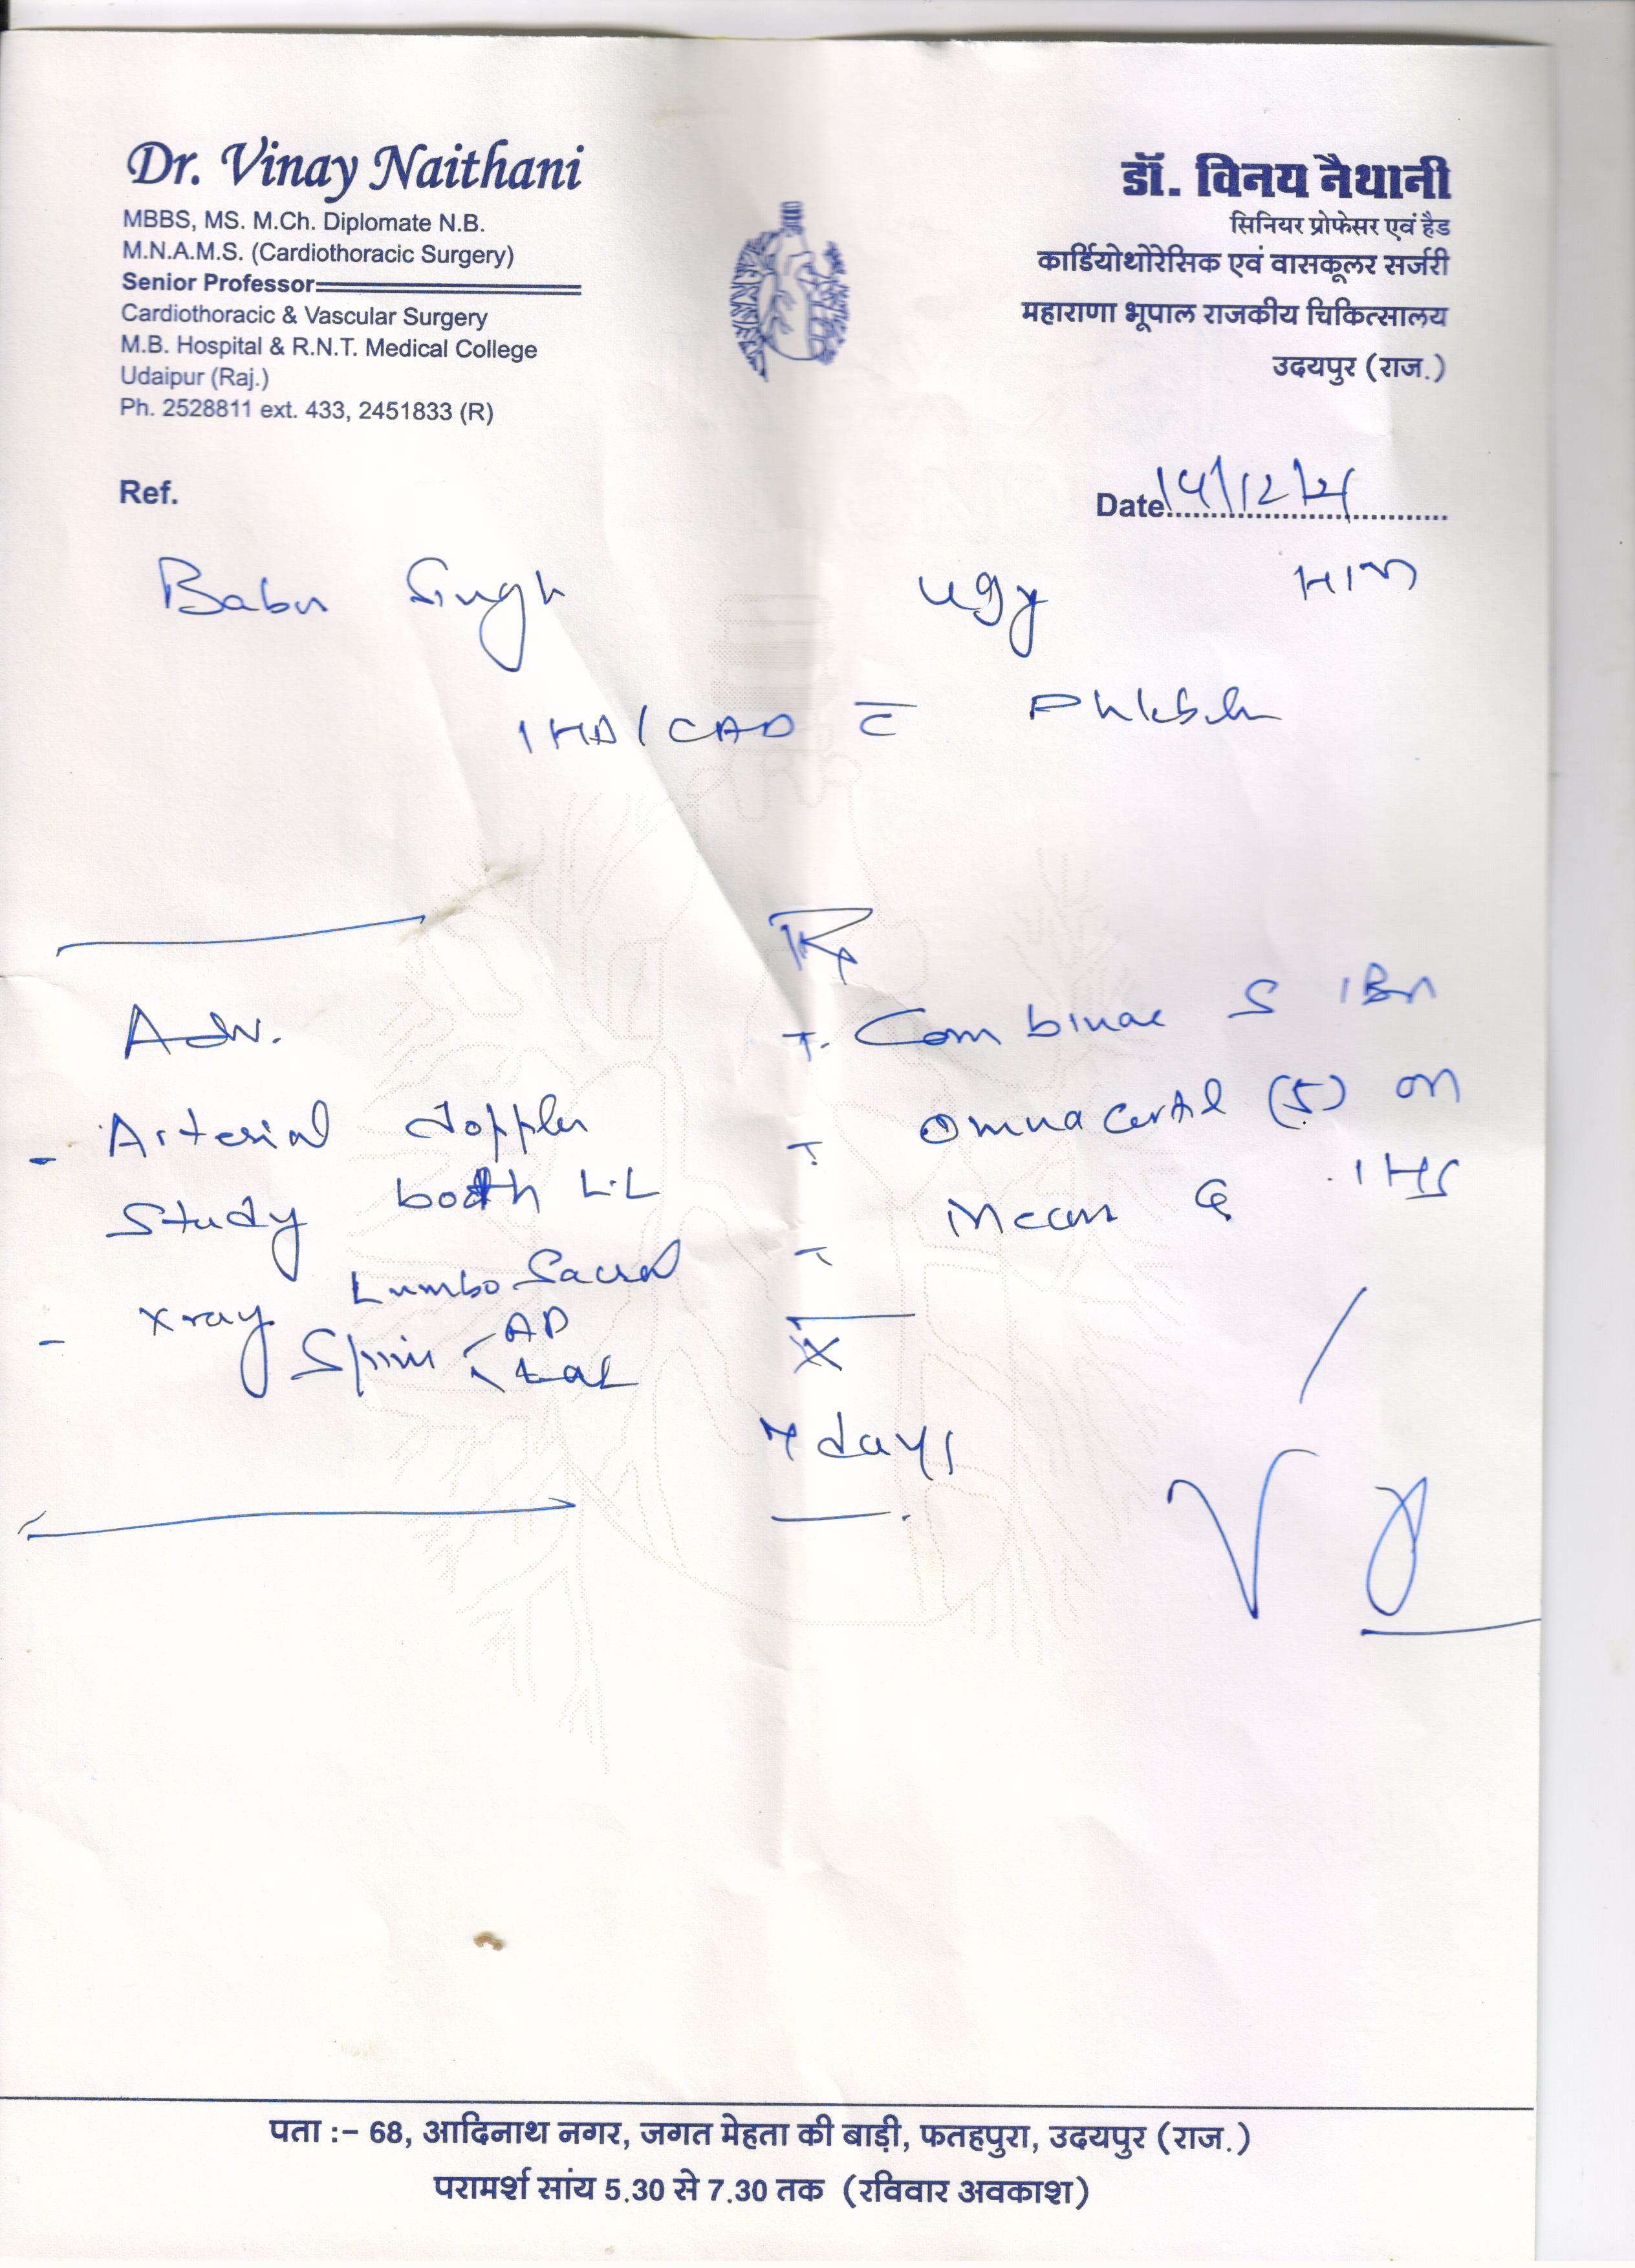 Dr. Vinay Naithani
MBBS, MS. M.Ch. Diplomate N.B.
M.N.A.M.S. (Cardiothoracic Surgery)
Senior Professor
Cardiothoracic & Vascular Surgery
M.B. Hospital & R.N.T. Medical College
Udaipur (Raj.)
Ph. 2528811 ext. 433, 2451833 (R)
डॉ. विनय नैथानी
सिनियर प्रोफेसर एवं हैड
कार्डियोथोरेसिक एवं वासकूलर सर्जरी
महाराणा भूपाल राजकीय चिकित्सालय
उदयपुर (राज.)
Ref.
Date 14/12/21
Babu Singh 49y
IHD/CAD c̅
Adv.
- Arterial doppler
Study both L.L
- Xray Lumbo Sacral
Spine AP
Lat
Rx
T. Combinae
T.
T
X
7 days
पता :– 68, आदिनाथ नगर, जगत मेहता की बाड़ी, फतहपुरा, उदयपुर (राज.)
परामर्श सांय 5.30 से 7.30 तक (रविवार अवकाश)